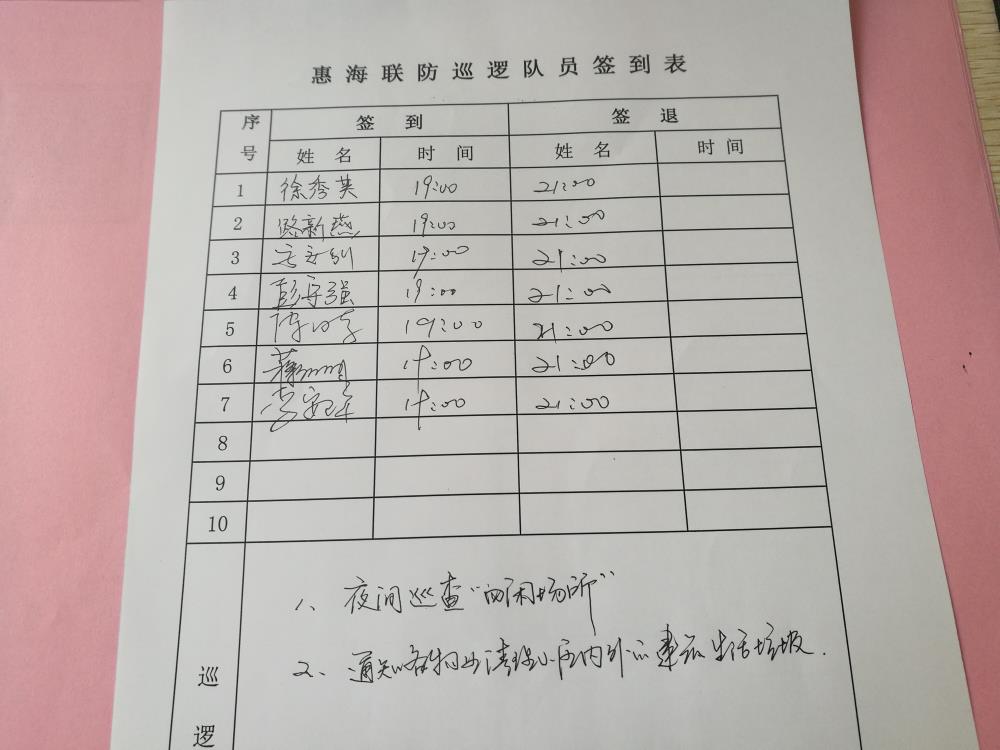 惠海联防巡逻队员签到表
序号 签到 签退
姓名 时间 姓名 时间
1 徐秀英 19:00 21:00
2 路新燕 19:00 21:00
3 19:00 21:00
4 彭守强 19:00 21:00
5 19:00 21:00
6 19:00 21:00
7 19:00 21:00
8
9
10
巡逻
1、夜间巡查“四闲场所”
2、通知各物业清理小区内外的建筑生活垃圾.